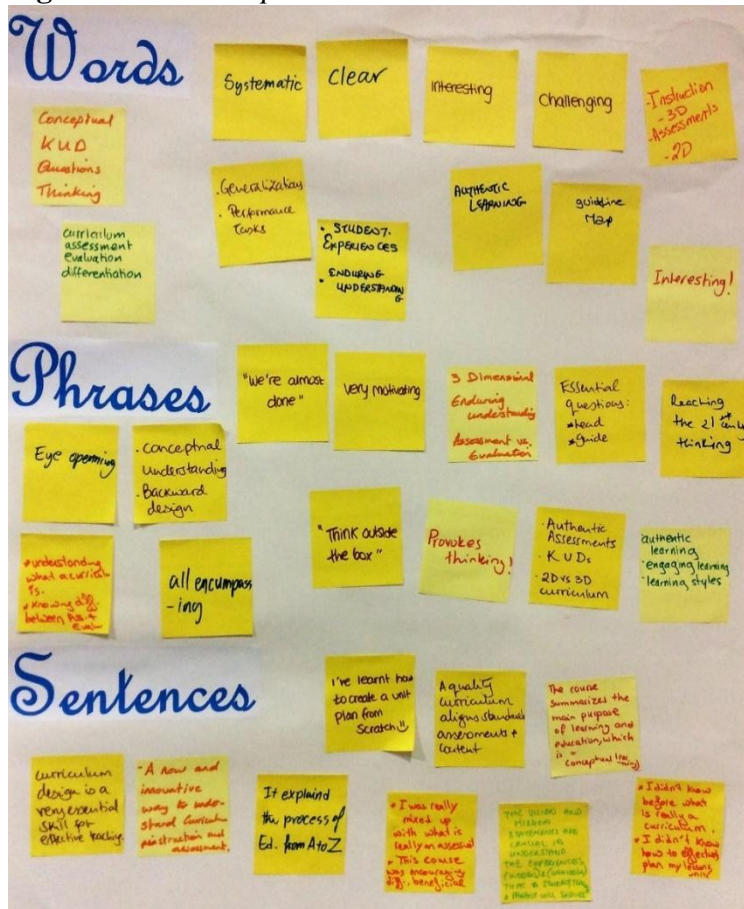 Words
Systematic
Clear
Interesting
Challenging
-Instruction
-3D
-Assessments
-2D
Conceptual
KUD
Questions
Thinking
. Generalizations
. Performance
Tasks
• STUDENT.
EXPERIENCES
• ENDURING
UNDERSTANDIN
G
AUTHENTIC
LEARNING
guideline
Map
curriculum
assessment
evaluation
differentiation
Interesting!
Phrases
"We're almost
done"
very motivating
3 Dimensional
Enduring
understanding
Assessment vs.
Evaluation
Essential
questions:
*Lead
*guide
Reaching
the 21st
thinking
Eye openning
. conceptual
understanding
. Backward
design
"Think outside
the box"
Provokes
thinking!
. Authentic
Assessments
. KUDs
. 2D vs 3D
curriculum
authentic
learning
• engaging learning
• learning styles
*understanding
what a
is.
* Knowing diff
between Ass. +
Evalu
all encompass
-ing
Sentences
I've learnt how
to create a unit
plan from
Scratch
A quality
curriculum
aligns standards
assessments +
content
The course
summarizes the
main purpose
of learning and
education, which
is =
conceptual
curriculum
design is a
very essential
skill for
effective teaching.
- A new and
innovative
way to unde-
stand Curriculum
and
assessment.
It explaind
the process of
Ed. from A to Z
* I was really
mixed up
with what is
really an
* This course
was encouraging
beneficial
AND
STATEMENTS ARE
CRUCIAL
UNDERSTAND
THE EXPERIENCES
* I didn't know
before what
is really a
curriculum.
* I didn't know
how to effectively
plan my lessons,